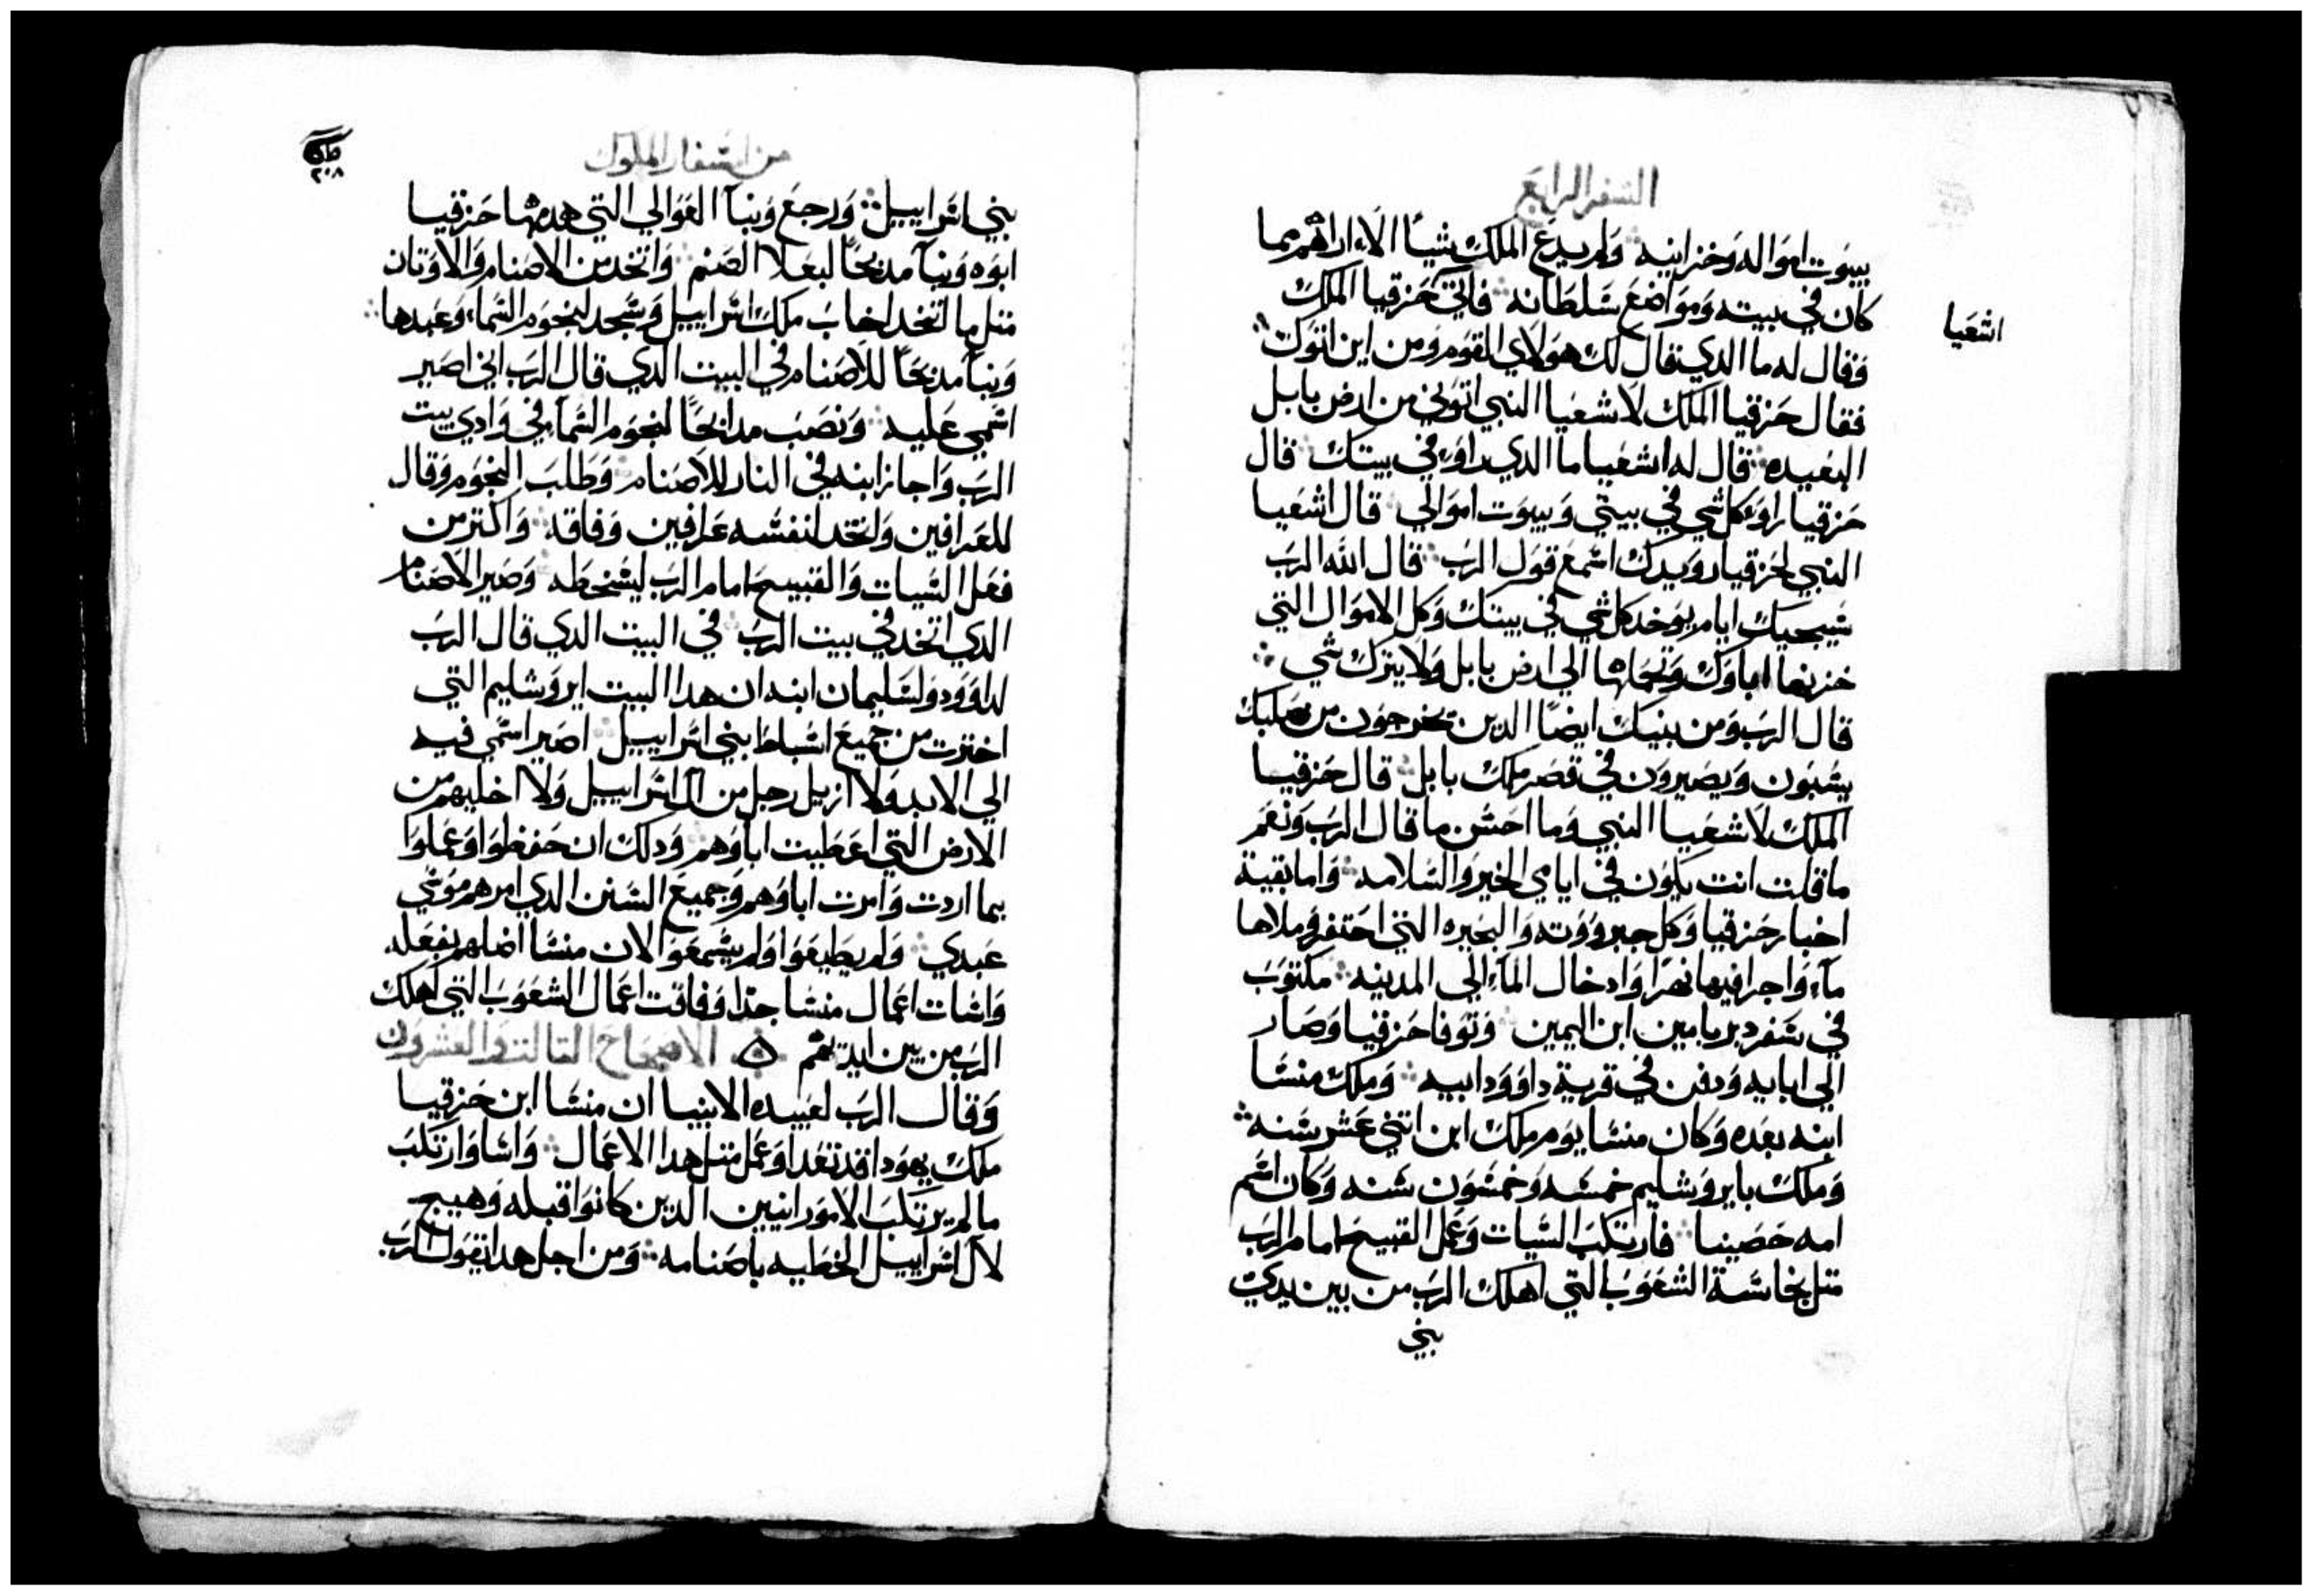 السفر الرابع
بيوت امواله وخزاينيه ولم يدع الملك شياً الا اراهم مما
كان في بيته ومواضع سلطانه فاتى حزقيا الملك
اشعيا
وقال له ما الدي قال لك هولاي القوم ومن اين اتوك
فقال حزقيا الملك لاشعيا النبي اتوني من ارض بابل
البعيده قال له اشعيا ما الدي راو في بيتك قال
حزقيا راو كل شي في بيتي وبيوت اموالي قال اشعيا
النبي لحزقيا رويدك اسمع قول الرب قال الله الرب
سيجيك ايام يوخد كل شي في بيتك وكل الاموال التي
خزنها اباوك وتحملها الي ارض بابل ولا يترك شي
قال الرب ومن بنيك ايضاً الدين تخرجون من صلبك
يسبون ويصيرون في قصر ملك بابل قال حزقيا
الملك لاشعيا النبي وما احسن ما قال الرب ونعم
ما قلت انت يكون في ايامي الخير والسلامه واما بقية
اخبار حزقيا وكل جبرووته والبحيره التي احتفر وملاها
مآء واجرا فيها نهرا وادخال المآء الي المدينه مكتوب
في سفر دبريامين ابن اليمين وتوفا حزقيا وصار
الي ابايه ودفن في قرية داوود ابيه وملك منسا
ابنه بعده وكان منسا يوم ملك ابن اتني عشر سنه
وملك بايروشليم خمسه وخمسون سنه وكان اسم
امه حصينا فارتكب السيات وعمل القبيح امام الرب
متل نجاسة الشعوب التي اهلك الرب من بين يدي
بني
من اسفار الملوك
٢٠٨
بني اسراييل ورجع وبنآ العوالي التي هدمها حزقيا
ابوه وبنآ مدبحاً لبعلا الصنم واتخد من الاصنام والاوتان
متل ما اتخد اخاب ملك اسراييل وسجد لنجوم السماء وعبدها
وبنآ مدبحاً للاصنام في البيت الدي قال الرب اني اصير
اسمي عليه ونصب مدابحاً لنجوم السمآء في وادي بيت
الرب واجاز ابنه في النار للاصنام وطلب النجوم وقال
للعرافين واتخد لنفسه عرافين وفاقد واكتر من
فعل السيات والقبيح امام الرب ليسخطه وصير الاصنام
الدي اتخد في بيت الرب في البيت الدي قال الرب
لداوود ولسليمان ابنه ان هدا البيت ايروشليم التي
اخترت من جميع اسباط بني اسراييل اصير اسمي فيه
الي الابد ولا ازيل رجل من آل اسراييل ولا اخليهم من
الارض التي اعطيت اباوهم ودلك ان حفظوا وعملوا
بما اردت وامرت اباوهم وجميع السنن الدي امرهم موسي
عبدي ولم يطيعوا ولم يسمعو الان منسا اضلهم بفعله
واسات اعمال منسا جدا وفاقت اعمال الشعوب التي اهلك
الرب من بين ايديهم الاصحاح التالت والعشرون
وقال الرب لعبيده الانبيا ان منسا ابن حزقيا
ملك يهودا قد تعدا وعمل متل هدا الاعمال واسا وارتكب
ما لم يرتكب الامورانيين الدين كانوا قبله وهيج
لآل اسراييل الخطيه باصنامه ومن اجل هدا يقول الرب